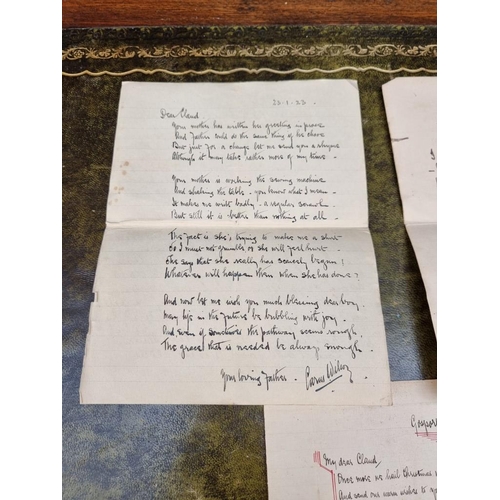 23-1-23.
Dear Claud
Your mother has written her greeting in prose
And Father could do the same thing if he chose
But just for a change let me send you a rhyme
Altho' it may take rather more of my time.
Your mother is working the sewing machine
And shaking the table - you know what I mean -
It makes me write badly - a regular scrawl -
But still it is better than nothing at all -
The fact is she's trying to make me a shirt
So I must not grumble or she will feel hurt -
She says that she really has scarcely begun!
Whatever will happen then when she has done?
And now let me wish you much blessing dear boy
May life in the future be bubbling with joy -
And even if sometimes the pathway seems rough,
The grace that is needed be always enough -
Your loving Father. Wilson
My dear Claud,
Once more we hail Christmas
And send our warm wishes to